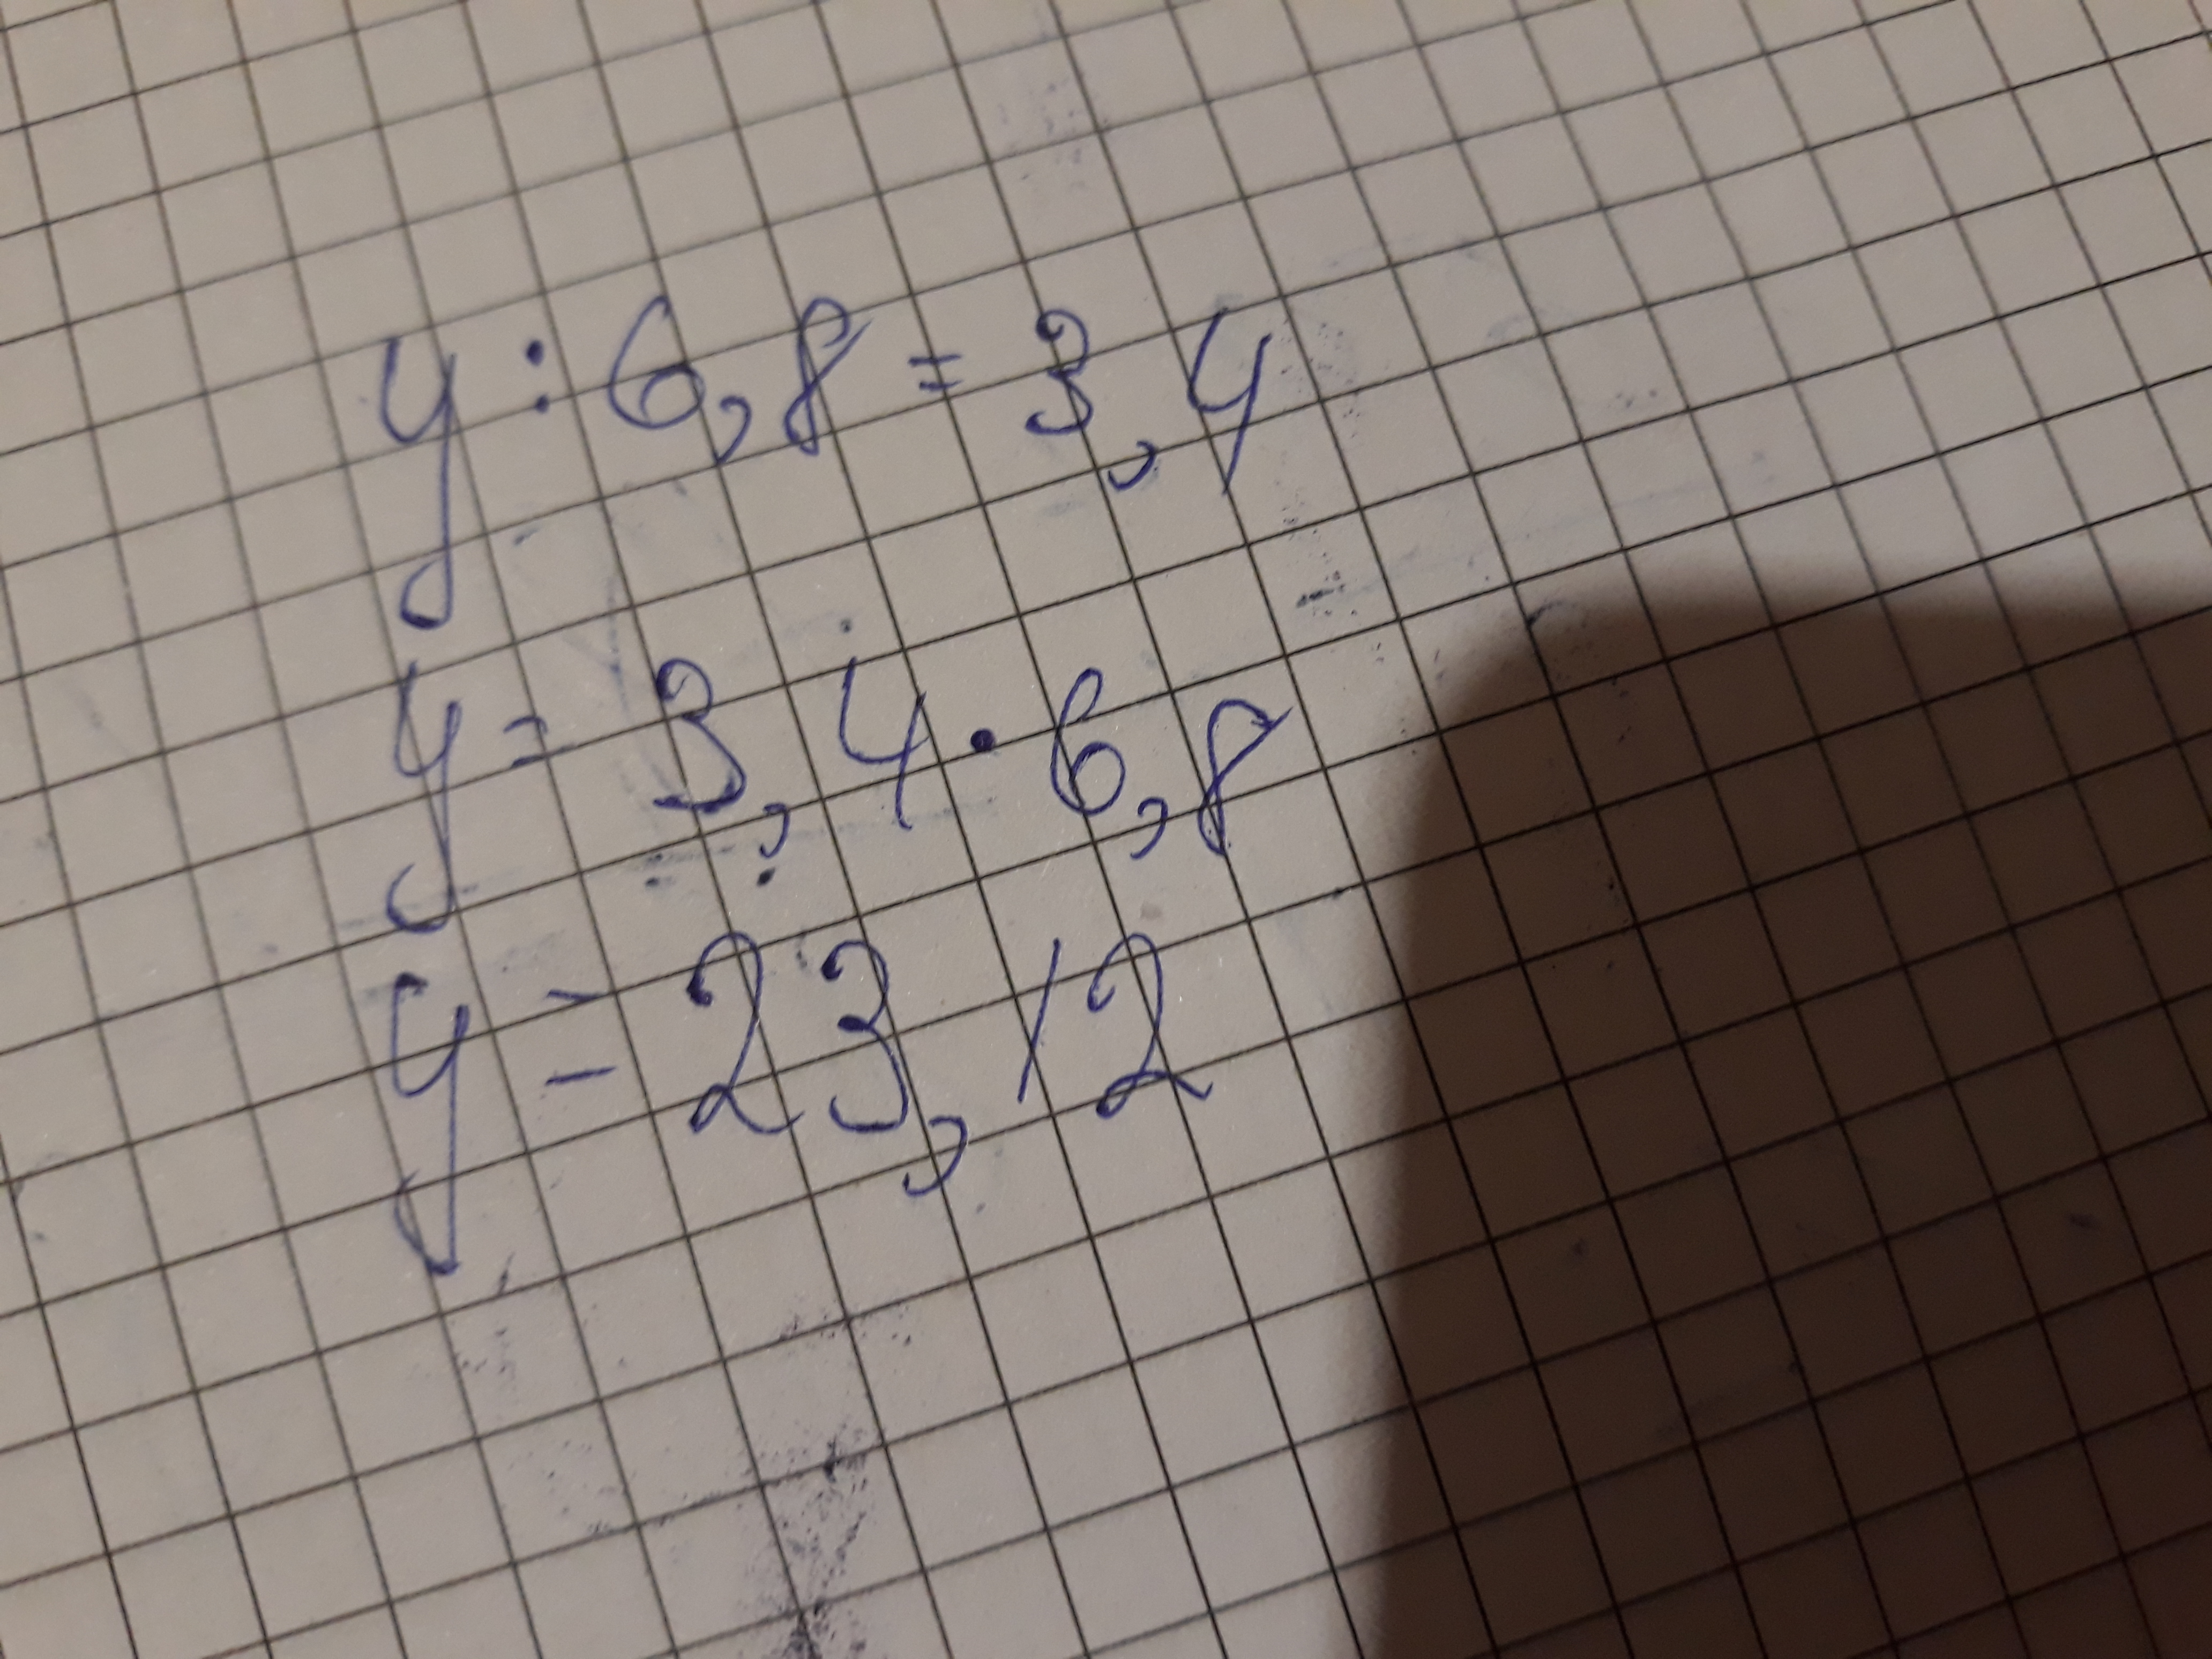 y : 6,8 = 3,4
y = 3,4 · 6,8
y = 23,12